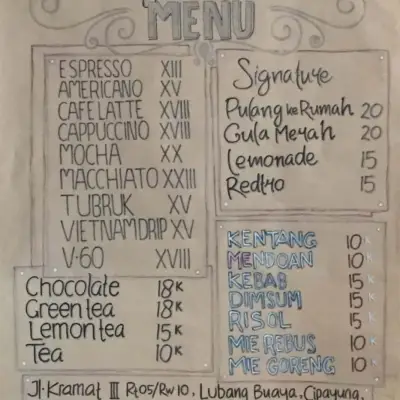 MENU
ESPRESSO XIII
AMERICANO XV
CAFELATTE XVIII
CAPPUCCINO XVIII
MOCHA XX
MACCHIATO XXIII
TUBRUK XV
VIETNAMDRIP XV
V-60 XVIII
Chocolate 18K
Greentea 18K
Lemontea 15K
Tea 10K
Signature
Pulang ke Rumah 20
Gula Merah 20
Lemonade 15
Redtro 15
KENTANG 10K
MENDOAN 10K
KEBAB 15K
DIMSUM 15K
RISOL 15K
MIE REBUS 10K
MIE GORENG 10K
Jl. Kramat III Rt05/Rw10, Lubang Buaya, Cipayung,